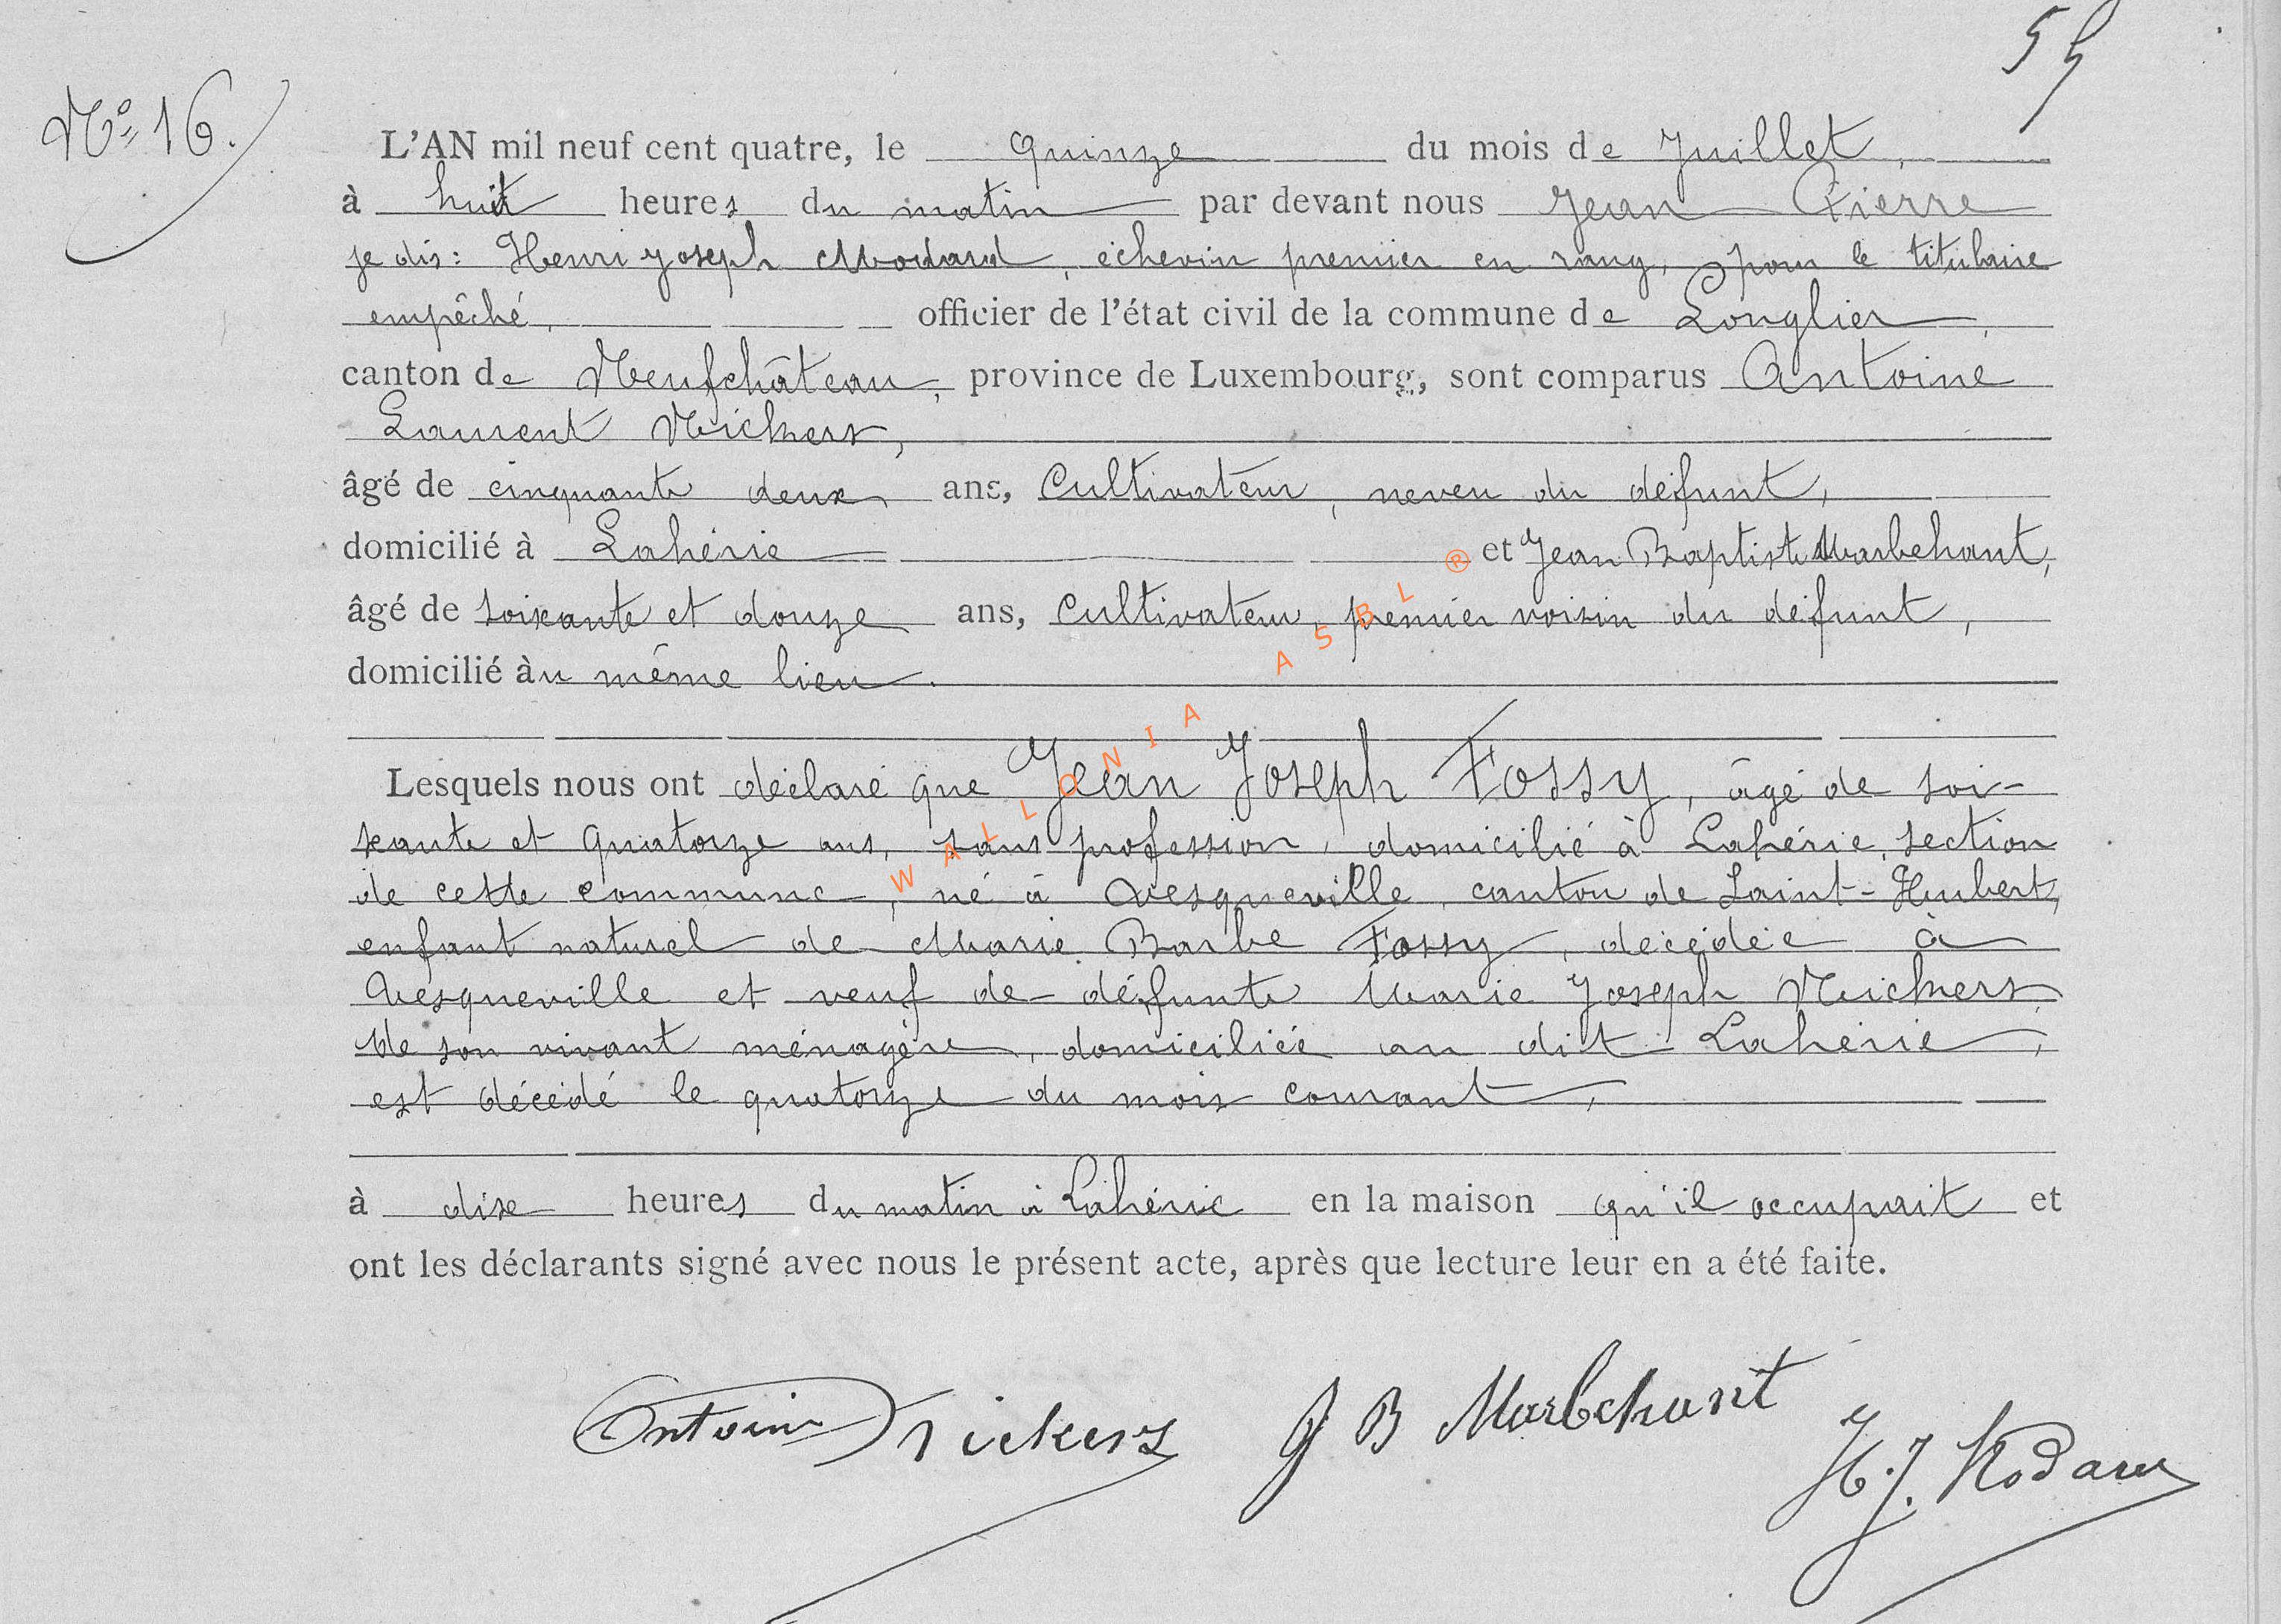 55
N° 16.
L'AN mil neuf cent quatre, le quinze du mois de Juillet,
à huit heures du matin par devant nous Jean Pierre
je dis: Henri Joseph Modard, échevin premier en rang, pour le titulaire
empêché, officier de l'état civil de la commune de Longlier,
canton de Neufchâteau, province de Luxembourg, sont comparus Antoine
Laurent Nickers,
âgé de cinquante deux ans, Cultivateur, neveu du défunt,
domicilié à Lahérie et Jean Baptiste Marbehant,
âgé de soixante et douze ans, Cultivateur, premier voisin du défunt,
domicilié au même lieu.
Lesquels nous ont déclaré que Jean Joseph Fossy, âgé de soi-
xante et quatorze ans, sans profession, domicilié à Lahérie, section
de cette commune, né à Vesqueville, canton de Saint-Hubert,
enfant naturel de Marie Barbe Fossy, décédée à
Vesqueville et veuf de défunte Marie Joseph Nickers
de son vivant ménagère, domiciliée au dit Lahérie,
est décédé le quatorze du mois courant,
à dix heures du matin à Lahérie en la maison qu'il occupait et
ont les déclarants signé avec nous le présent acte, après que lecture leur en a été faite.
Antoine Nickers J B Marbehant
H.J. Modard
WALLONIA ASBL ®